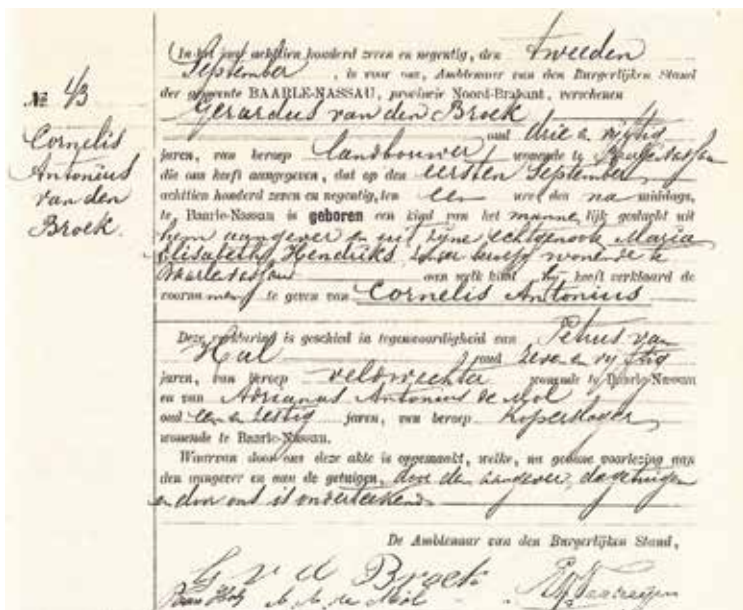 № 43
Cornelis
Antonius
van den
Broek.
In het jaar achttien honderd zeven en negentig, den tweeden
September, is voor ons, Ambtenaar van den Burgerlijken Stand
der gemeente BAARLE-NASSAU, provincie Noord-Brabant, verschenen
Gerardus van den Broek
oud drie en vijftig
jaren, van beroep landbouwer, wonende te Baarle Nassau
die ons heeft aangegeven, dat op den eersten September
achttien honderd zeven en negentig, ten een ure des na middags,
te Baarle-Nassau is geboren een kind van het manne lijk geslacht uit
hem aangever en uit zijne echtgenoote Maria
Elisabeth Hendriks, zonder beroep wonende te
Baarle Nassau aan welk kind hij heeft verklaard de
voornamen te geven van Cornelis Antonius
Deze verklaring is geschied in tegenwoordigheid van Petrus van
Hal oud zeven en vijftig
jaren, van beroep veldwachter wonende te Baarle-Nassau
en van Adrianus Antonius de Mol
oud een en zestig jaren, van beroep Koperslager,
wonende te Baarle-Nassau.
Waarvan door ons deze akte is opgemaakt, welke, na gedane voorlezing aan
den aangever en aan de getuigen, door den aangever, de getuigen
en door ons is onderteekend
De Ambtenaar van den Burgerlijken Stand,
G v d Broek
A. A. de Mol